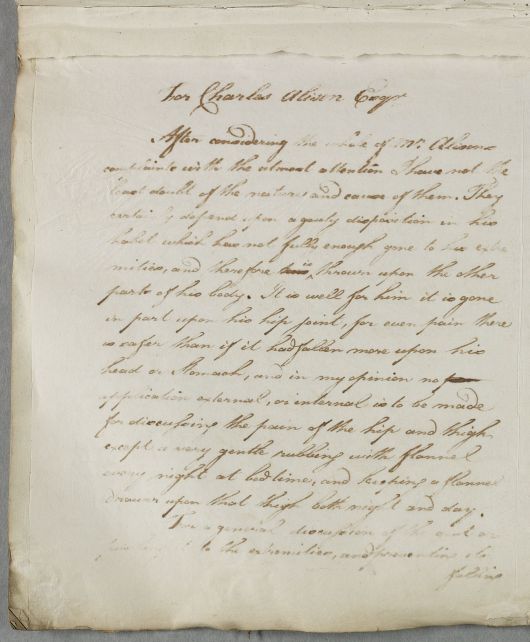 For Charles Alison Esqr
After considering the whole of Mr. Alisons
complaints with the utmost attention I have not the
least doubt of the nature and cause of them. They
certainly depend upon a gouty disposition in his
habit which has not fully enough gone to his extre
mities, and therefore is thrown upon the other
parts of his body. It is well for him it is gone
in part upon his hip joint, for even pain there
is safer than if it had fallen more upon his
head or Stomach, and in my opinion no
application external, or internal is to be made
for discussing the pain of the hip and thigh
except a very gentle rubbing with flannel
every night at bed time, and keeping a flannel
drawer upon that thigh both night and day.
For a general discussion of the gout or
to the extremities, and preventing its
falling